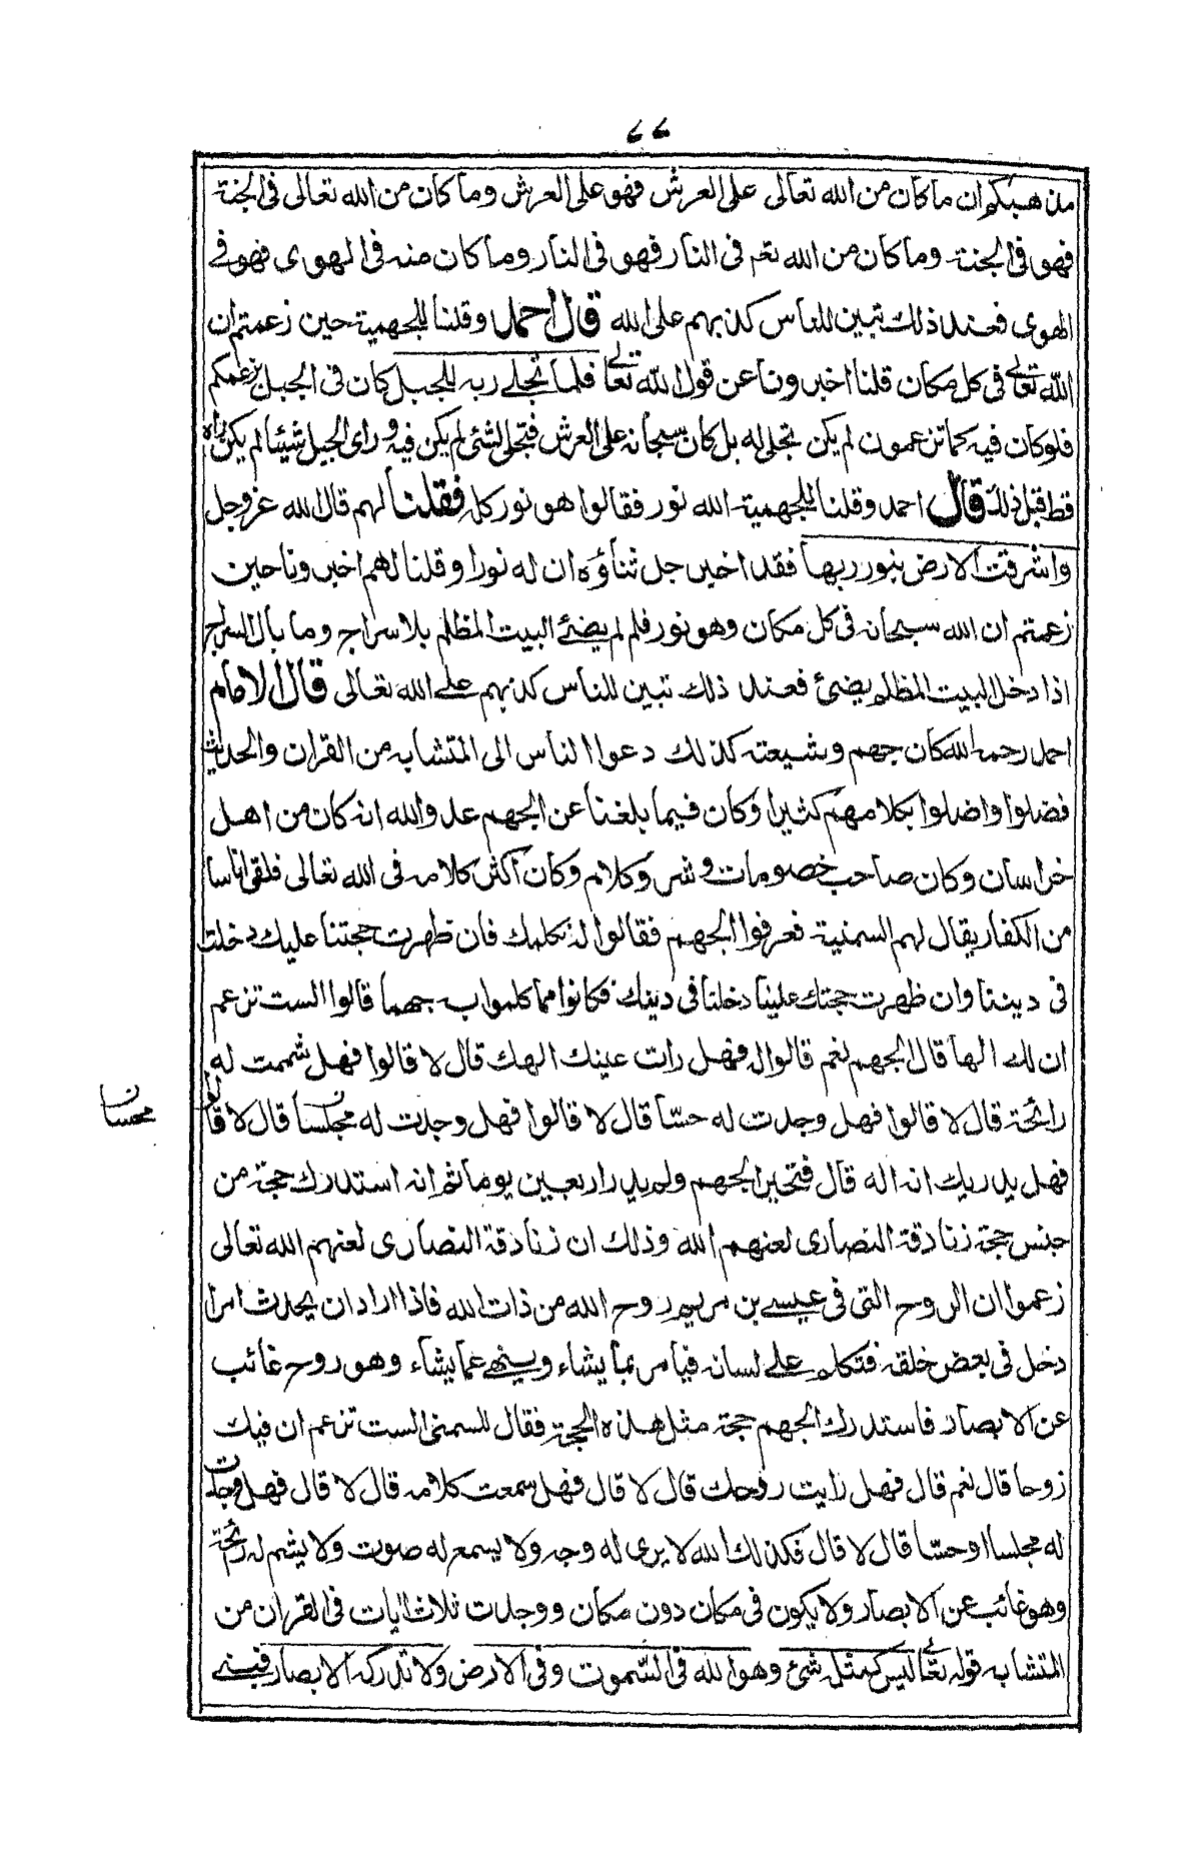 ٧٧
مذهبكم ان ما كان من الله تعالى على العرش فهو على العرش وما كان من الله تعالى فى الجنة
فهو فى الجنة وما كان من الله تعم فى النار فهو فى النار وما كان منه فى الهوى فهو فى
الهوى فعند ذلك تبين للناس كذبهم على الله قال احمد وقلنا للجهمية حين زعمتم ان
الله تعالى فى كل مكان قلنا اخبرونا عن قول الله تعالى فلما تجلى ربه للجبل كان فى الجبل بزعمكم
فلو كان فيه كما تزعمون لم يكن تجلى له بل كان سبحانه على العرش فتجلى لشئ لم يكن فيه وراى الجبل شيئا لم يكن راه
قط قبل ذلك قال احمد وقلنا للجهمية الله نور فقالوا هو نور كله فقلنا لهم قال الله عز وجل
واشرقت الارض بنور ربها فقد اخبر جل ثناؤه ان له نورا وقلنا لهم اخبرونا حين
زعمتم ان الله سبحانه فى كل مكان وهو نور فلم لم يضئ البيت المظلم بلا سراج وما بال السراج
اذا دخل البيت المظلم يضئ فعند ذلك تبين للناس كذبهم على الله تعالى قال الامام
احمد رحمه الله كان جهم وشيعته كذلك دعوا الناس الى المتشابه من القران والحديث
فضلوا واضلوا بكلامهم كثيرا وكان فيما بلغنا عن الجهم عدو الله انه كان من اهل
خراسان وكان صاحب خصومات وشر وكلام وكان اكثر كلامه فى الله تعالى فلقى اناسا
من الكفار يقال لهم السمنية فعرفوا الجهم فقالوا له نكلمك فان ظهرت حجتنا عليك دخلت
فى ديننا وان ظهرت حجتك علينا دخلنا فى دينك فكانوا مما كلموا به جهما قالوا الست تزعم
ان لك الها قال الجهم نعم قالوا له فهل رات عينك الهك قال لا قالوا فهل شممت له
رائحة قال لا قالوا فهل وجدت له حسّا قال لا قالوا فهل وجدت له مجلسا قال لا قالوا
محسا ن
فهل يدريك انه اله قال فتحير الجهم ولم يدر اربعين يوما ثم انه استدرك حجة من
جنس حجة زنادقة النصارى لعنهم الله وذلك ان زنادقة النصارى لعنهم الله تعالى
زعموا ان الروح التى فى عيسى بن مريم روح الله من ذات الله فاذا اراد ان يحدث امرا
دخل فى بعض خلقه فتكلم على لسانه فيامر بما يشاء وينهى عما يشاء وهو روح غائب
عن الابصار فاستدرك الجهم حجة مثل هذه الحجة فقال للسمنى الست تزعم ان فيك
روحا قال نعم قال فهل رايت روحك قال لا قال فهل سمعت كلامه قال لا قال فهل وجدت
له مجلسا او حسّا قال لا قال فكذلك الله لا يرى له وجه ولا يسمع له صوت ولا يشم له رائحة
وهو غائب عن الابصار ولا يكون فى مكان دون مكان ووجدت ثلاث ايات فى القران من
المتشابه قوله تعالى ليس كمثله شئ وهو الله فى السّموت وفى الارض ولا تدركه الابصار فبنى